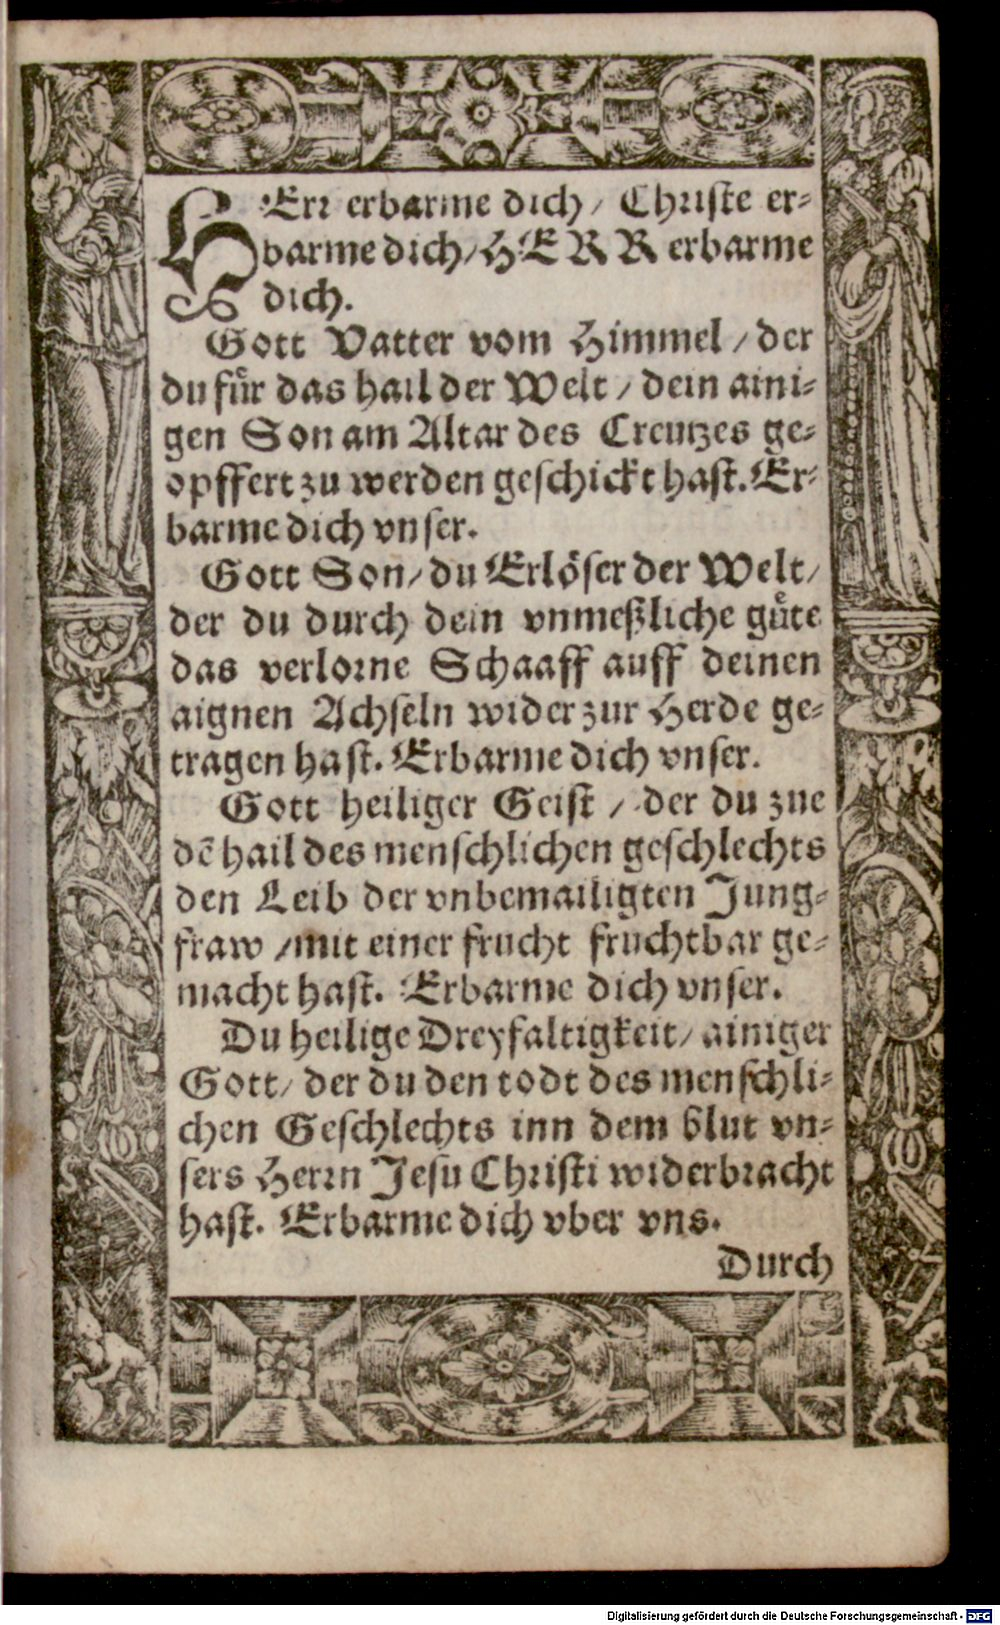 HErr erbarme dich / Christe er-
barme dich / HERR erbarme
dich.
Gott Vatter vom Himmel / der
du fuͤr das hail der Welt / dein aini-
gen Son am Altar des Creutzes ge-
opffert zu werden geschickt hast. Er-
barme dich vnser.
Gott Son / du Erlöser der Welt /
der du durch dein vnmeßliche guͤte
das verlorne Schaaff auff deinen
aignen Achseln wider zur Herde ge-
tragen hast. Erbarme dich vnser.
Gott heiliger Geist / der du zue
dē hail des menschlichen geschlechts
den Leib der vnbemailigten Jung-
fraw / mit einer frucht fruchtbar ge-
macht hast. Erbarme dich vnser.
Du heilige Dreyfaltigkeit / ainiger
Gott / der du den todt des menschli-
chen Geschlechts inn dem blut vn-
sers Herrn Jesu Christi widerbracht
hast. Erbarme dich vber vns.
Durch
Digitalisierung gefördert durch die Deutsche Forschungsgemeinschaft - DFG